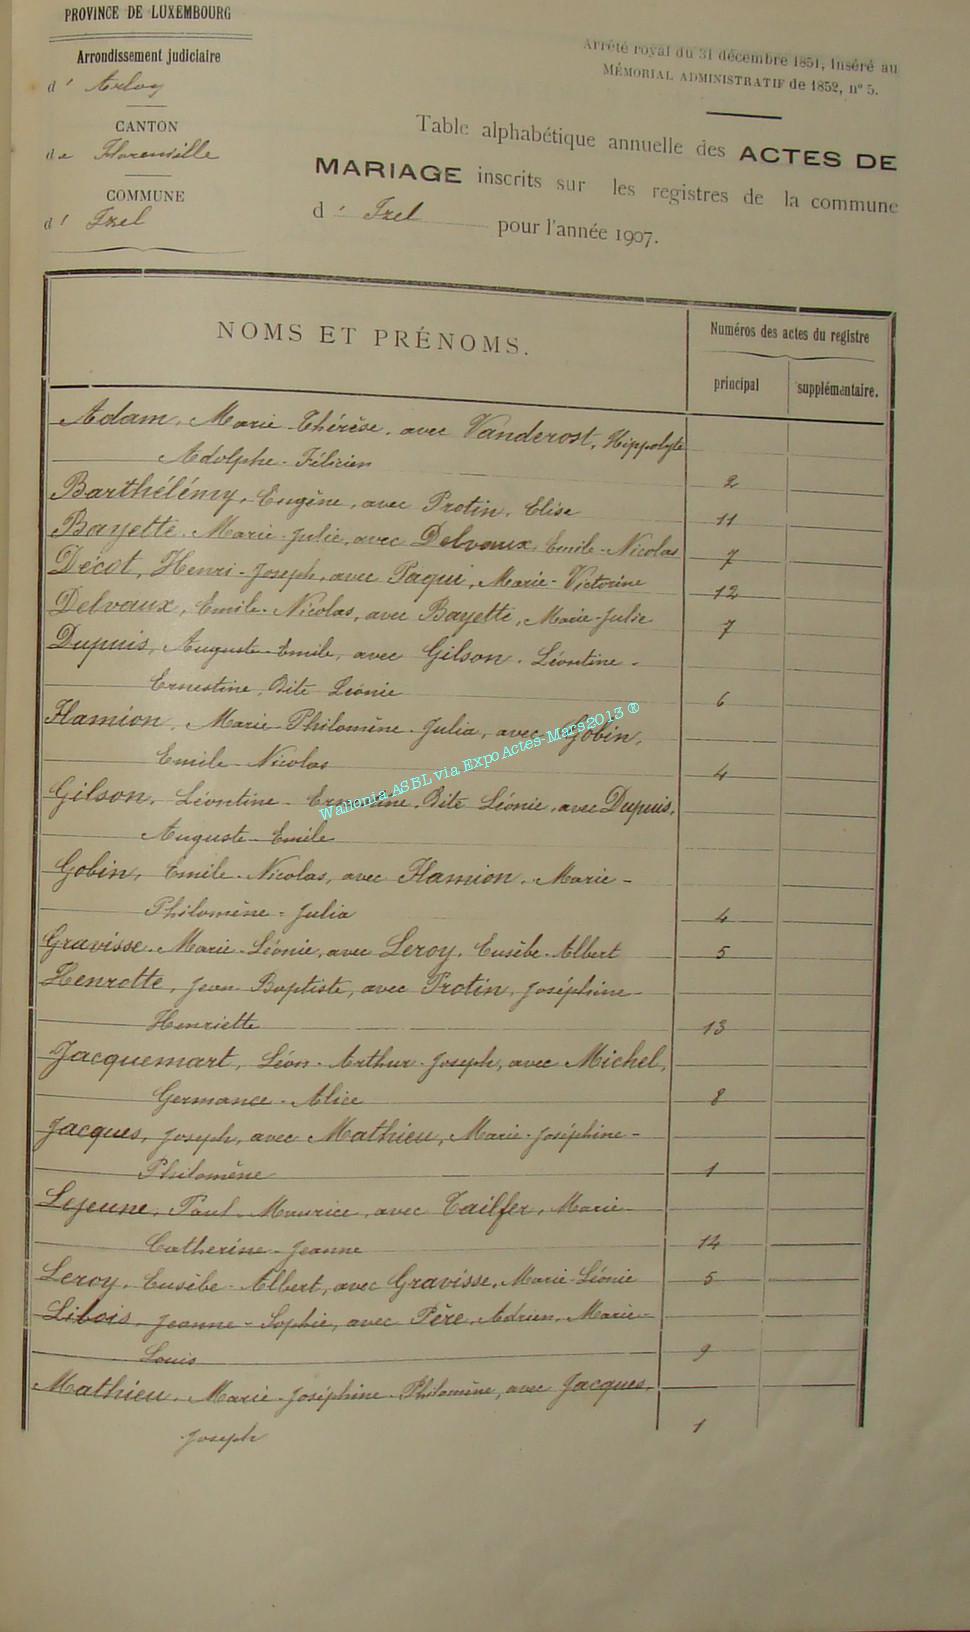 PROVINCE DE LUXEMBOURG
Arrondissement judiciaire
d' Arlon
CANTON
de Florenville
COMMUNE
d' Izel
Arrêté royal du 31 décembre 1851, inséré au
MÉMORIAL ADMINISTRATIF de 1852, nº 5.
Table alphabétique annuelle des ACTES DE
MARIAGE inscrits sur les registres de la commune
d' Izel pour l'année 1907.
NOMS ET PRÉNOMS.
Numéros des actes du registre
principal supplémentaire.
Adam, Marie-Thérèse, avec Vanderost, Hippolyte
Adolphe-Félicien 2
Barthélémy, Eugène, avec Protin, Elise 11
Bayette, Marie-Julie, avec Delvaux, Emile-Nicolas 7
Décot, Henri-Joseph, avec Paqui, Marie-Victorine 12
Delvaux, Emile-Nicolas, avec Bayette, Marie-Julie 7
Dupuis, Auguste-Emile, avec Gilson, Léontine-
Ernestine, Dite Léonie 6
Hamion, Marie-Philomène-Julia, avec Gobin,
Emile-Nicolas 4
Gilson, Léontine-Ernestine, Dite Léonie, avec Dupuis,
Auguste-Emile
Gobin, Emile-Nicolas, avec Hamion, Marie-
Philomène-Julia 4
Gravisse, Marie-Léonie, avec Leroy, Eusèbe-Albert 5
Henrotte, Jean-Baptiste, avec Protin, Joséphine-
Henriette 13
Jacquemart, Léon-Arthur-Joseph, avec Michel,
Germance-Alice 8
Jacques, Joseph, avec Mathieu, Marie-Joséphine-
Philomène 1
Lejeune, Paul-Maurice, avec Tailfer, Marie-
Catherine-Jeanne 14
Leroy, Eusèbe-Albert, avec Gravisse, Marie-Léonie 5
Libois, Jeanne-Sophie, avec Père, Adrien-Marie-
Louis 9
Mathieu, Marie-Joséphine-Philomène, avec Jacques,
Joseph 1
Wallonia ASBL via ExpoActes-Mars2013 ®